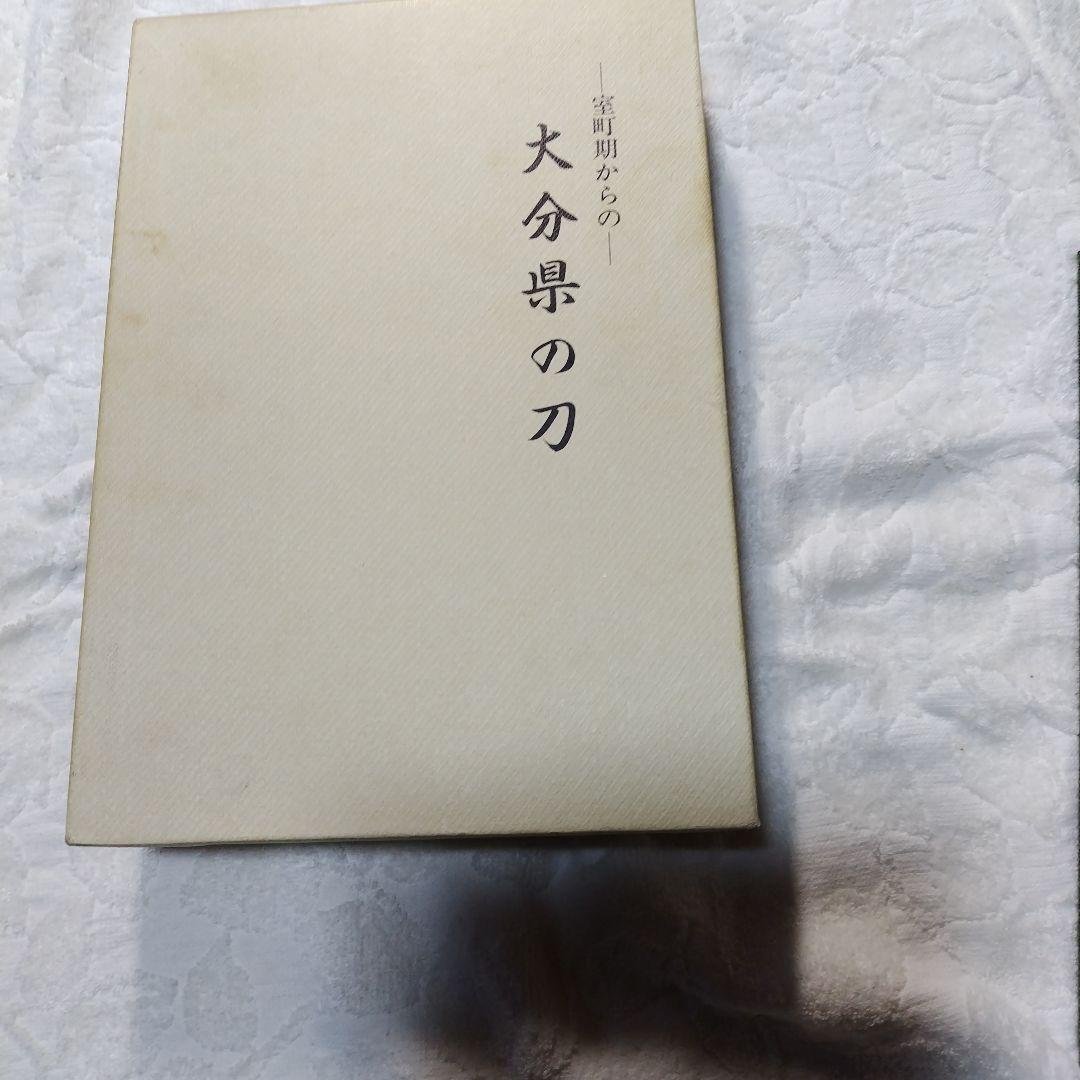 ―室町期からの―
大分県の刀